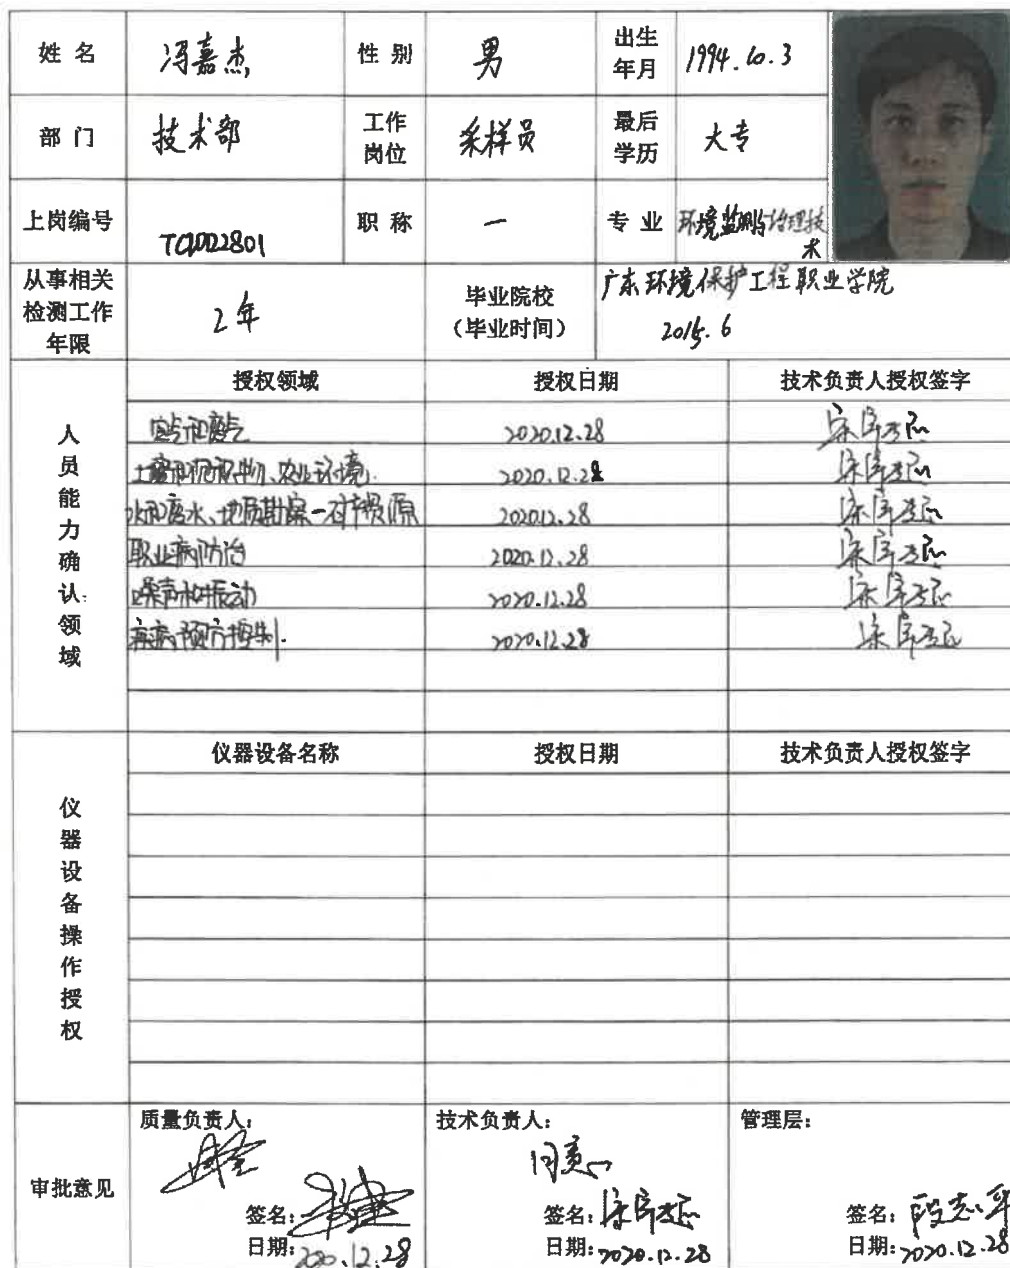 姓 名 冯嘉杰 性 别 男 出生年月 1994.10.3
部 门 技术部 工作岗位 采样员 最后学历 大专
上岗编号 职 称 — 专 业 环境监测与治理技术
从事相关检测工作年限 2年 毕业院校（毕业时间） 广东环境保护工程职业学院
2015.6
人员能力确认领域
授权领域 授权日期 技术负责人授权签字
空气和废气 2020.12.28
土壤和沉积物、农业环境 2020.12.28
水和废水、地质勘察- 2020.12.28
职业病防治 2020.12.28
噪声和振动 2020.12.28
疾病预防控制. 2020.12.28
仪器设备操作授权
仪器设备名称 授权日期 技术负责人授权签字
审批意见
质量负责人： 技术负责人： 管理层：
同意
签名： 签名： 签名：段志平
日期：2020.12.28 日期：2020.12.28 日期：2020.12.28